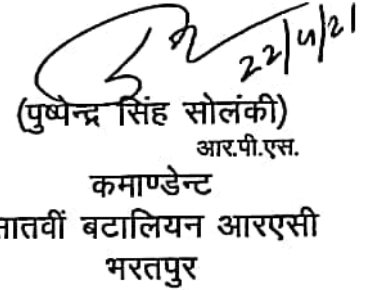 22/4/21
(पुष्पेन्द्र सिंह सोलंकी)
आर.पी.एस.
कमाण्डेन्ट
सातवीं बटालियन आरएसी
भरतपुर